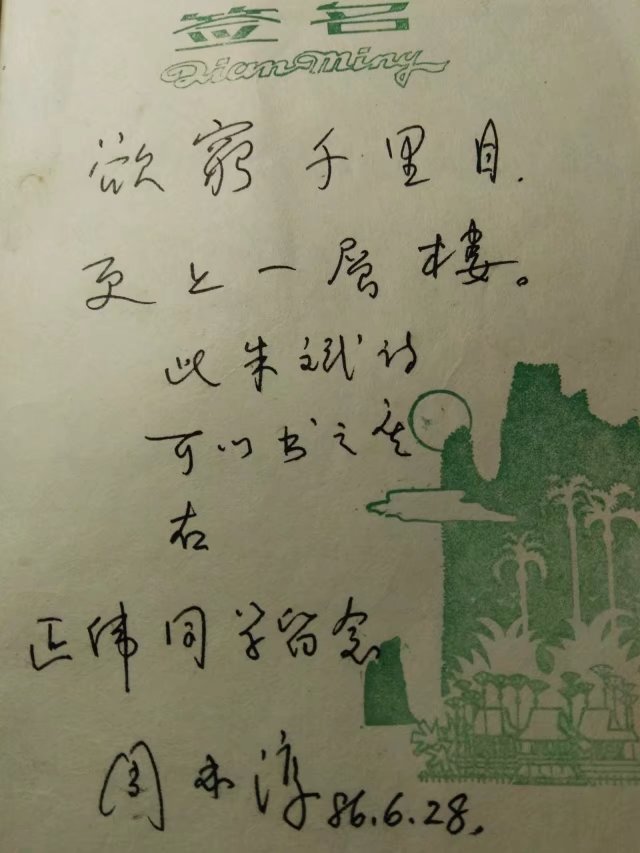 签名
Qian Ming
欲窮千里目.
更上一層樓。
此朱斌诗
可以书之座
右
正伟同学留念
周本淳 86.6.28.